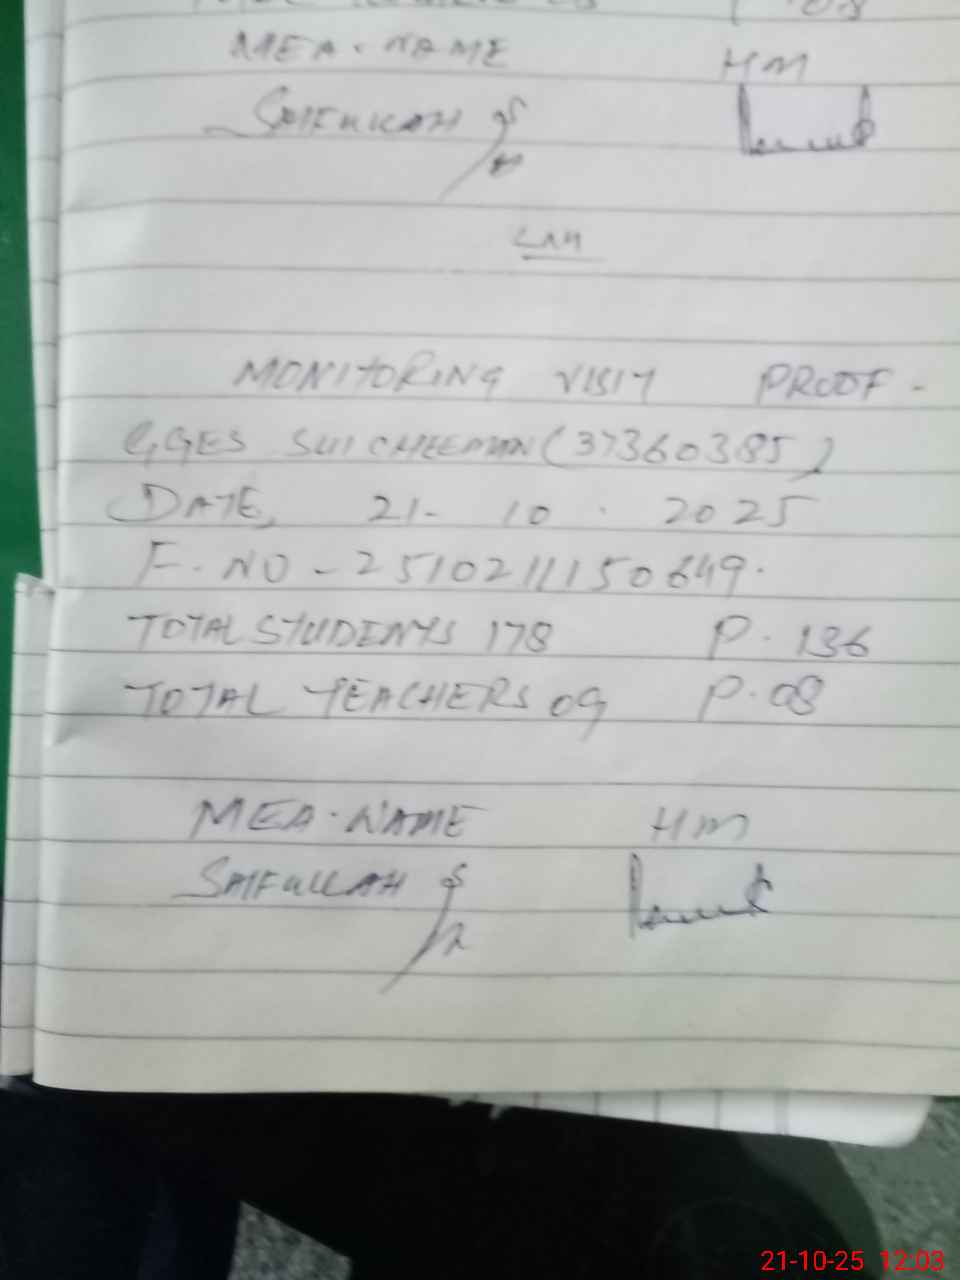 MEA. NAME HM
SAIFULLAH
MONITORING VISIT PROOF -
GGES SUI CHEEMAN (37360385)
DATE, 21- 10 . 2025
F. NO - 2510211150649.
TOTAL STUDENTS 178 P. 136
TOTAL TEACHERS 09 P. 08
MEA. NAME HM
SAIFULLAH
21-10-25 12:03